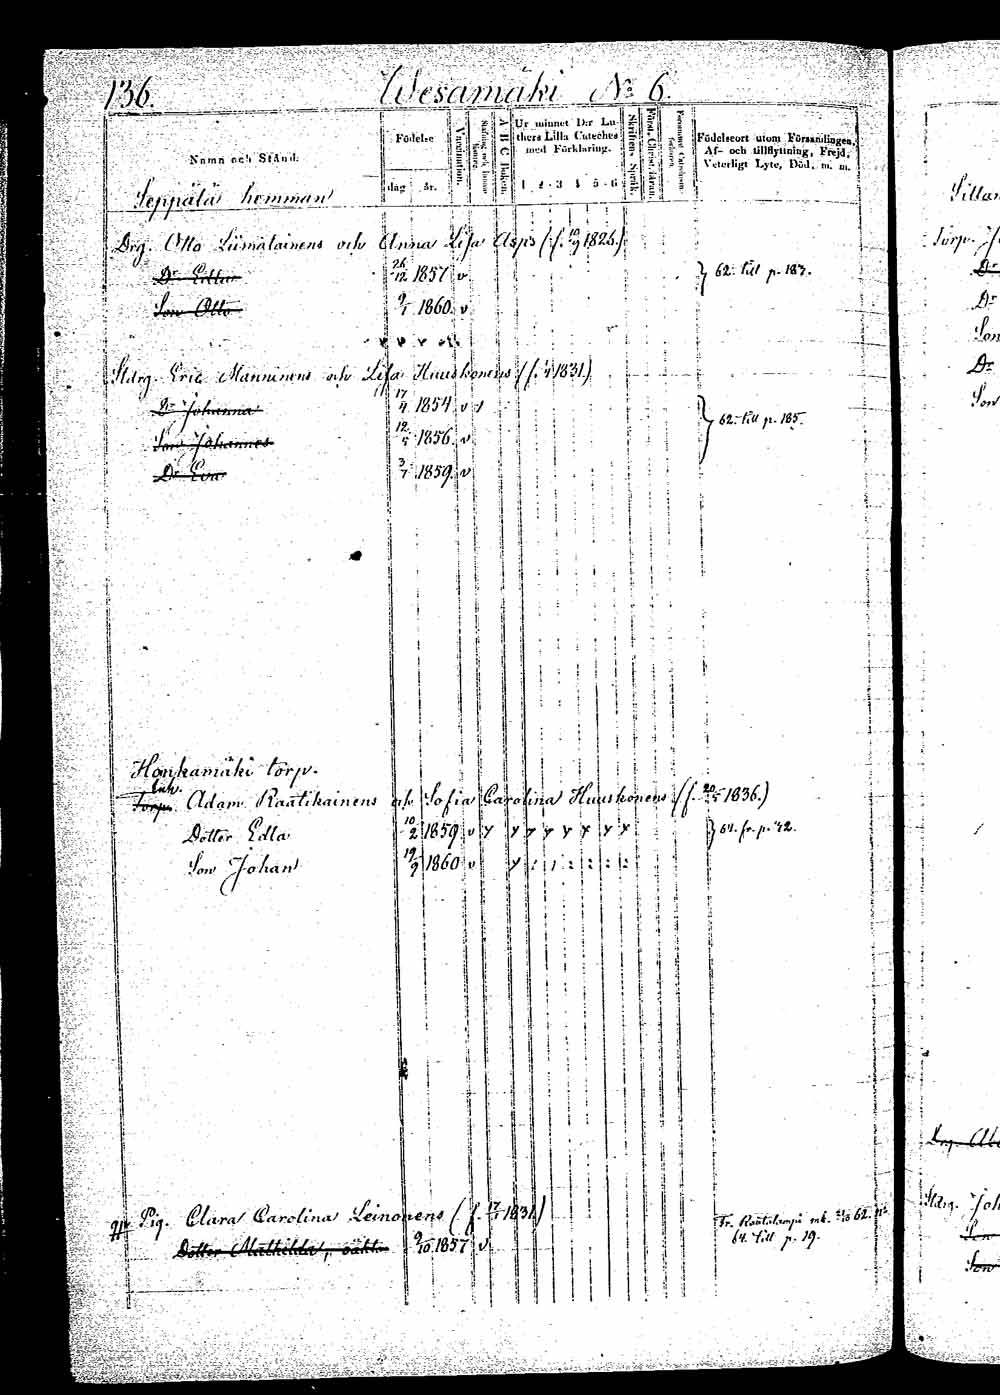 136. Wesamäki No 6.
Namn och Stånd.
Födelse
dag år.
Vaccination.
A B C Boken.
Ur minnet D:r Luthers Lilla Cateches med Förklaring.
1 2 3 4 5 6
Skriftens Språk.
Födelseort utom Församlingen, Af- och tillflyttning, Frejd, Veterligt Lyte, Död, m. m.
Seppälä hemman
Drg. Otto Liimatainens och Anna Lisa Asps (f. 10/9 1826.)
Dr Edla 26/12 1857 v 62. till p. 187.
Son Otto 9/1 1860. v
Stdrg. Eric Manninens och Lisa Huuskonens (f. 1831.)
Dr Johanna 17/4 1854 v 62. till p. 185.
Son Johannes 1856. v
Dr Eva 3/7 1859. v
Honkamäki torp.
Torp. Adam Raatikainens och Sofia Carolina Huuskonens (f. 20/5 1836.)
Dotter Edla 10/2 1859 v 61. fr. p. 42.
Son Johan 19/9 1860 v
Pig. Clara Carolina Leinonens (f. 17/1 1831.) Fr. Rautalampi mb. 62.
Dotter Mathilda, oäkta 9/10 1857 v. 64. till p. 19.
Sillan
Torp. J
Dr
Dr
Son
Dr
Son
Drg.
Stdrg. Joh
Son
Son